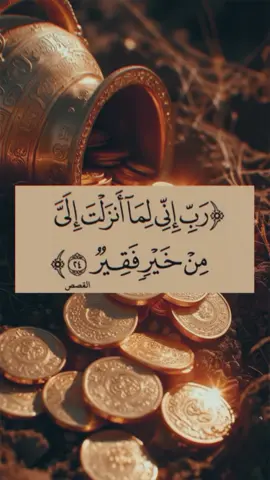 ﴿رَبِّ إِنِّى لِمَآ أَنزَلْتَ إِلَىَّ
مِنْ خَيْرٍ فَقِيرٌ ٢٤﴾
القصص